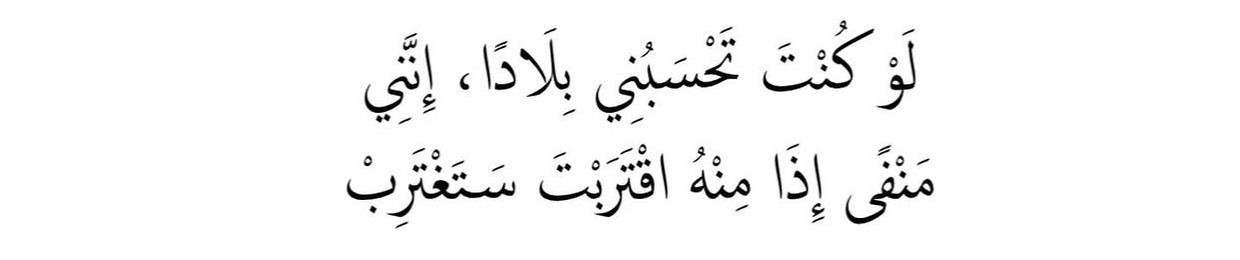 لَوْ كُنْتَ تَحْسَبُنِي بِلَادًا، إِنَّنِي
مَنْفًى إِذَا مِنْهُ اقْتَرَبْتَ سَتَغْتَرِبْ